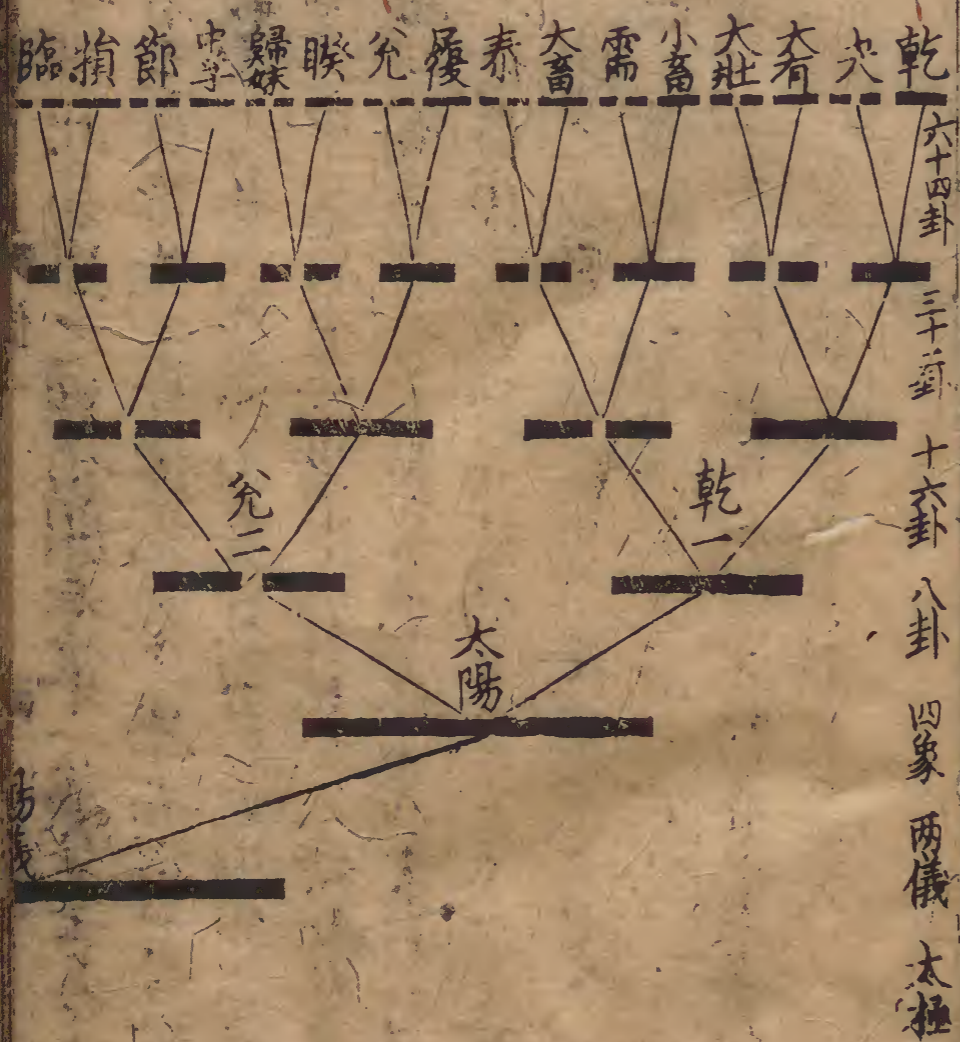 乾
夬
大有
大壯
小畜
需
大畜
泰
履
兌
睽
歸妹
中孚
節
損
臨
六十四卦
三十二卦
十六卦
八卦
四象
两儀
太極
乾一
兌二
太陽